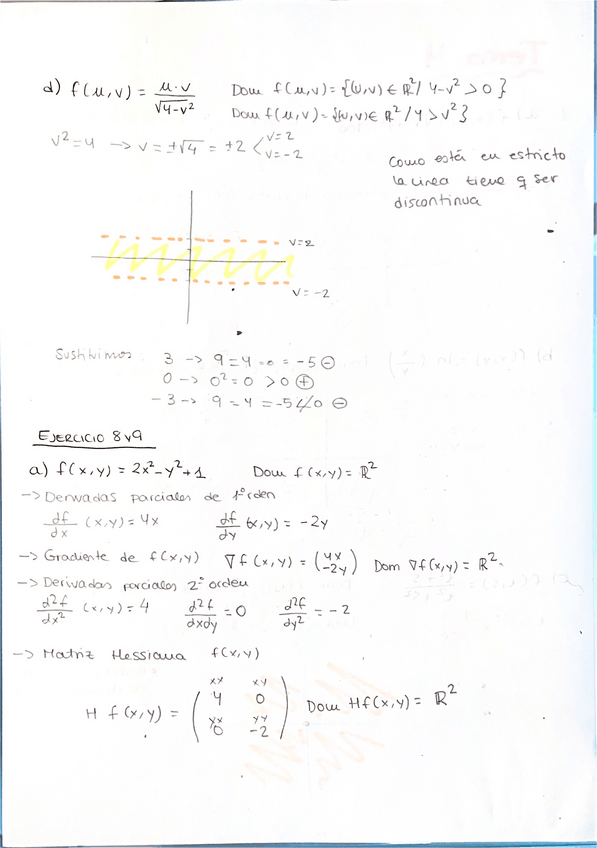 d) f(u,v) = u·v / √(4-v²)   Dom f(u,v) = {(u,v) ∈ ℝ² / 4-v² > 0}
Dom f(u,v) = {(u,v) ∈ ℝ² / 4 > v²}
v² = 4 → v = ±√4 = ±2 < v=2
v=-2
Como está en estricto
la línea tiene q ser
discontinua
v=2
v=-2
Sustituimos: 3 -> 9 = 4 = 0 = -5 ⊖
0 -> 0² = 0 > 0 ⊕
-3 -> 9 = 4 = -5 ⊖
EJERCICIO 8 y 9
a) f(x,y) = 2x² - y² + 1   Dom f(x,y) = ℝ²
-> Derivadas parciales de 1º orden
df/dx (x,y) = 4x   df/dy (x,y) = -2y
-> Gradiente de f(x,y) ∇f(x,y) = (4x -2y) Dom ∇f(x,y) = ℝ²
-> Derivadas parciales 2º orden
d²f/dx² (x,y) = 4   d²f/dxdy = 0   d²f/dy² = -2
-> Matriz Hessiana f(x,y)
xx xy
H f(x,y) = ( 4 0   Dom Hf(x,y) = ℝ²
yx yy
0 -2 )